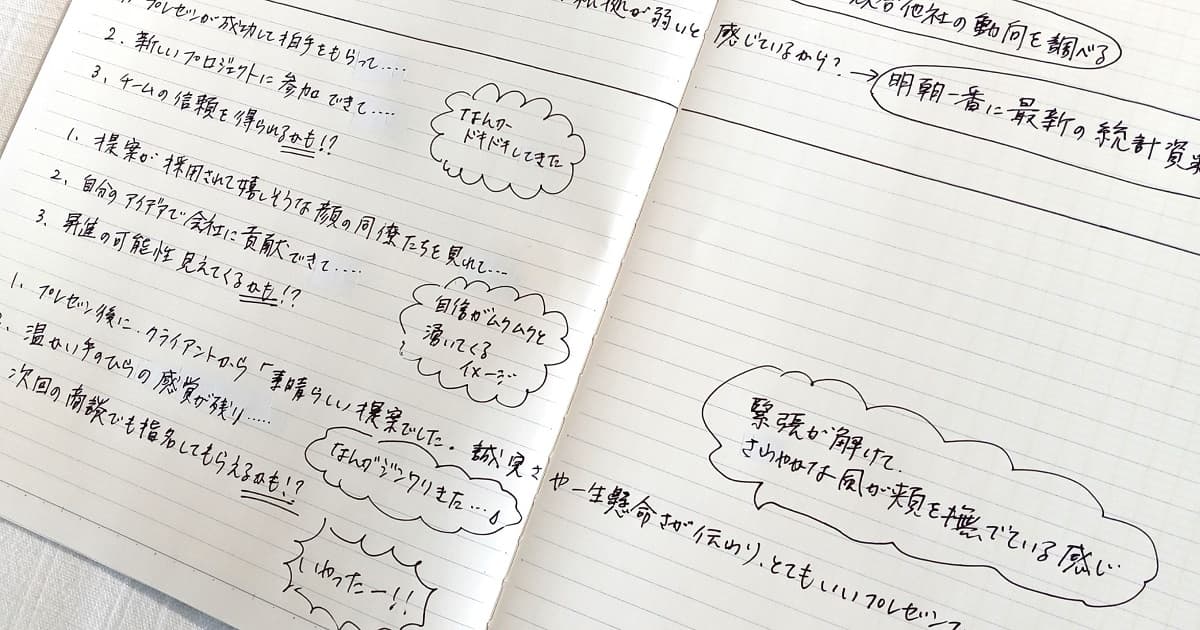 1. プレゼンが成功して拍手をもらって....
2. 新しいプロジェクトに参加できて....
3. チームの信頼を得られるかも!?
なんか
ドキドキしてきた
1. 提案が採用されて嬉しそうな顔の同僚たちを見れて...
2. 自分のアイデアで会社に貢献できて....
3. 昇進の可能性見えてくるかも!?
自信がムクムクと
湧いてくる
イメージ
1. プレゼン後に、クライアントから「素晴らしい提案でした。誠実さや一生懸命さが伝わり、とてもいいプレゼン
2. 温かい手のひらの感覚が残り.....
次回の商談でも指名してもらえるかも!?
なんかジンワリきた...♪
いやったー!!
拠が弱いと
感じているから?→
他社の動向を調べる
明朝一番に最新の統計資
緊張が解けて、
さわやかな風が頬を撫でている感じ